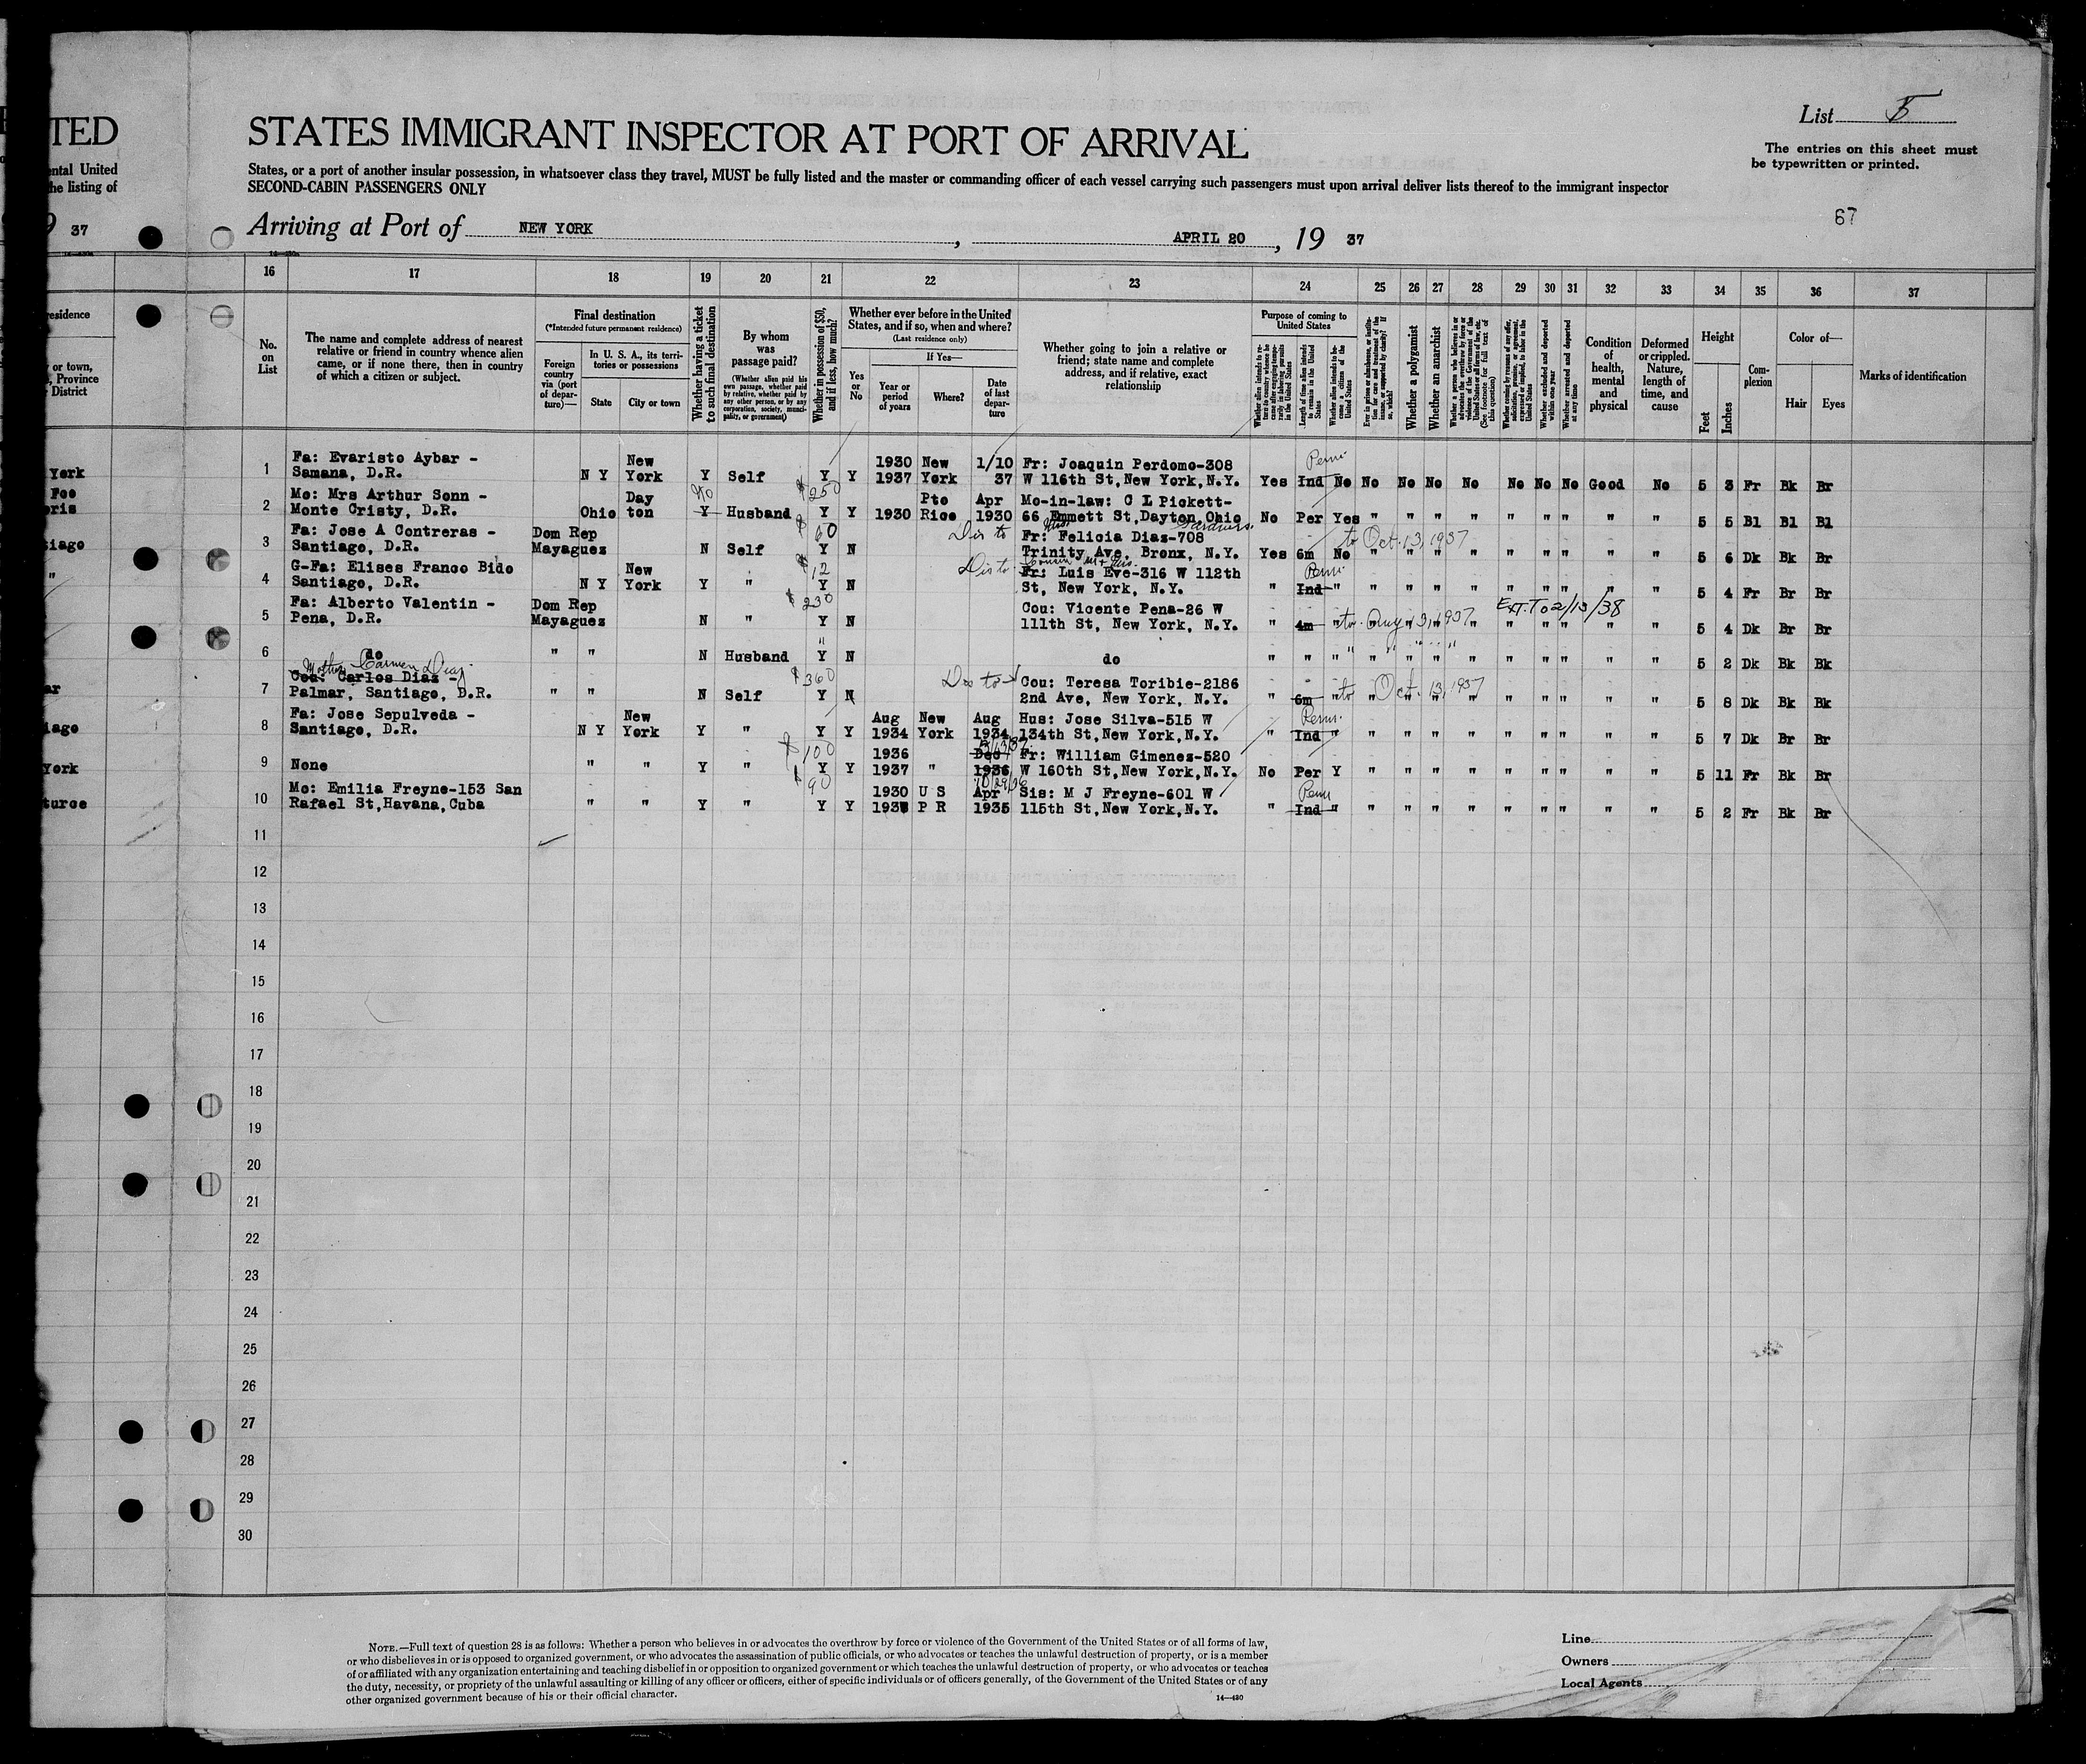 TED
ental United
he listing of
9 37
STATES IMMIGRANT INSPECTOR AT PORT OF ARRIVAL
States, or a port of another insular possession, in whatsoever class they travel, MUST be fully listed and the master or commanding officer of each vessel carrying such passengers must upon arrival deliver lists thereof to the immigrant inspector
SECOND-CABIN PASSENGERS ONLY
List 5
The entries on this sheet must
be typewritten or printed.
67
Arriving at Port of NEW YORK, APRIL 20, 19 37
16 17 18 19 20 21 22 23 24 25 26 27 28 29 30 31 32 33 34 35 36 37
esidence
or town,
, Province
District
No.
on
List
The name and complete address of nearest
relative or friend in country whence alien
came, or if none there, then in country
of which a citizen or subject.
Final destination
(*Intended future permanent residence)
Foreign
country
via (port
of depar-
ture)—
In U. S. A., its terri-
tories or possessions
State
City or town
Whether having a ticket
to such final destination
By whom
was
passage paid?
(Whether alien paid his
own passage, whether paid
by relative, whether paid by
any other person, or by any
corporation, society, munici-
pality, or government)
Whether in possession of $50,
and if less, how much?
Whether ever before in the United
States, and if so, when and where?
(Last residence only)
If Yes—
Yes
or
No
Year or
period
of years
Where?
Date
of last
depar-
ture
Whether going to join a relative or
friend; state name and complete
address, and if relative, exact
relationship
Purpose of coming to
United States
Length of time alien intends
to remain in the United
States
Whether alien intends to be-
come a citizen of the
United States
Whether a polygamist
Whether an anarchist
Whether arrested and deported
at any time
Condition
of
health,
mental
and
physical
Deformed
or crippled.
Nature,
length of
time, and
cause
Height
Feet
Inches
Com-
plexion
Color of—
Hair
Eyes
Marks of identification
York
1 Fa: Evaristo Aybar -
Samana, D.R. N Y New
York Y Self Y Y 1930
1937 New
York 1/10
37 Fr: Joaquin Perdomo-308
W 116th St, New York, N.Y. Yes Ind Perm No No No No No No No No Good No 5 3 Fr Bk Br
2 Mo: Mrs Arthur Sonn -
Monte Cristy, D.R. Ohio Day
ton Y No Husband $250 Y Y 1930 Pto
Rico Apr
1930 Mo-in-law: C L Pickett-
66 Emmett St, Dayton, Ohio No Per Yes " " " " " " " " " 5 5 Bl Bl Bl
tiago
3 Fa: Jose A Contreras -
Santiago, D.R. Dom Rep
Mayaguez N Self $60 Y N Dis to Fr: Felicia Diaz-708
Trinity Ave, Bronx, N.Y. Yes 6m No to Oct. 13, 1937 " " " " " " " " " 5 6 Dk Bk Br
"
4 G-Fa: Elises Franco Bido
Santiago, D.R. N Y New
York Y " $12 Y N Dis to Cousin Fr: Luis Eve-316 W 112th
St, New York, N.Y. " Ind Perm " " " " " " " " " " 5 4 Fr Br Br
5 Fa: Alberto Valentin -
Pena, D.R. Dom Rep
Mayaguez N " $230 Y N Cou: Vicente Pena-26 W
111th St, New York, N.Y. " 4m " to Aug 13, 1937 Ext. To 2/13/38 " " " " " " " " " 5 4 Dk Br Br
6 do " " N Husband " Y N do " " " " " " " " " " " " 5 2 Dk Bk Bk
ar
7 Mother Carmen Diaz
Cou: Carlos Diaz -
Palmar, Santiago, D.R. " " N Self $360 Y N Dis to Cou: Teresa Toribie-2186
2nd Ave, New York, N.Y. " 6m " to Oct. 13, 1937 " " " " " " " " " 5 8 Dk Bk Bk
iago
8 Fa: Jose Sepulveda -
Santiago, D.R. N Y New
York Y " Y Y Aug
1934 New
York Aug
1934 Hus: Jose Silva-515 W
134th St, New York, N.Y. " Ind Perm " " " " " " " " " " 5 7 Dk Br Br
York
9 None " " Y " $100 Y Y 1936
1937 " Dec
1936 Fr: William Gimenez-520
W 160th St, New York, N.Y. No Per Y " " " " " " " " " 5 11 Fr Bk Br
turce
10 Mo: Emilia Freyne-153 San
Rafael St, Havana, Cuba " " Y " $90 Y Y 1930 U S
P R 10/29/36 Apr
1935 Sis: M J Freyne-601 W
115th St, New York, N.Y. " Ind Perm " " " " " " " " " " 5 2 Fr Bk Br
11
12
13
14
15
16
17
18
19
20
21
22
23
24
25
26
27
28
29
30
NOTE.—Full text of question 28 is as follows: Whether a person who believes in or advocates the overthrow by force or violence of the Government of the United States or of all forms of law,
or who disbelieves in or is opposed to organized government, or who advocates the assassination of public officials, or who advocates or teaches the unlawful destruction of property, or is a member
of or affiliated with any organization entertaining and teaching disbelief in or opposition to organized government or which teaches the unlawful destruction of property, or who advocates or teaches
the duty, necessity, or propriety of the unlawful assaulting or killing of any officer or officers, either of specific individuals or of officers generally, of the Government of the United States or of any
other organized government because of his or their official character.
14—430
Line
Owners
Local Agents